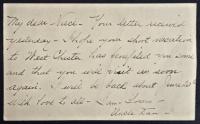 My dear Niece - Your letter received
yesterday - I hope your short vacation
to West Chester has benefited you some
and that you will visit us soon
again. I will be back about
With Love to all - Sam -
Uncle Sam